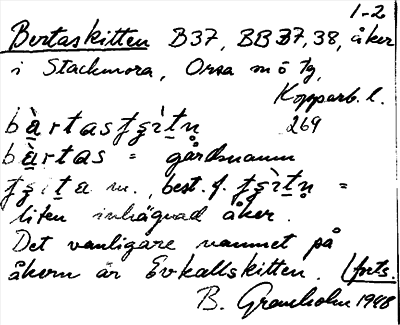 1-2
Bertaskitten B37, BB37,38, åker
i Stackmora, Orsa
Kopparb. l.
269
bàrtas
bàrtas = gårdsnamn
m., best. f. =
liten inhägnad åker.
Det vanligare namnet på
åkern är Evkallskitten. (forts.
B. Granholm 1948